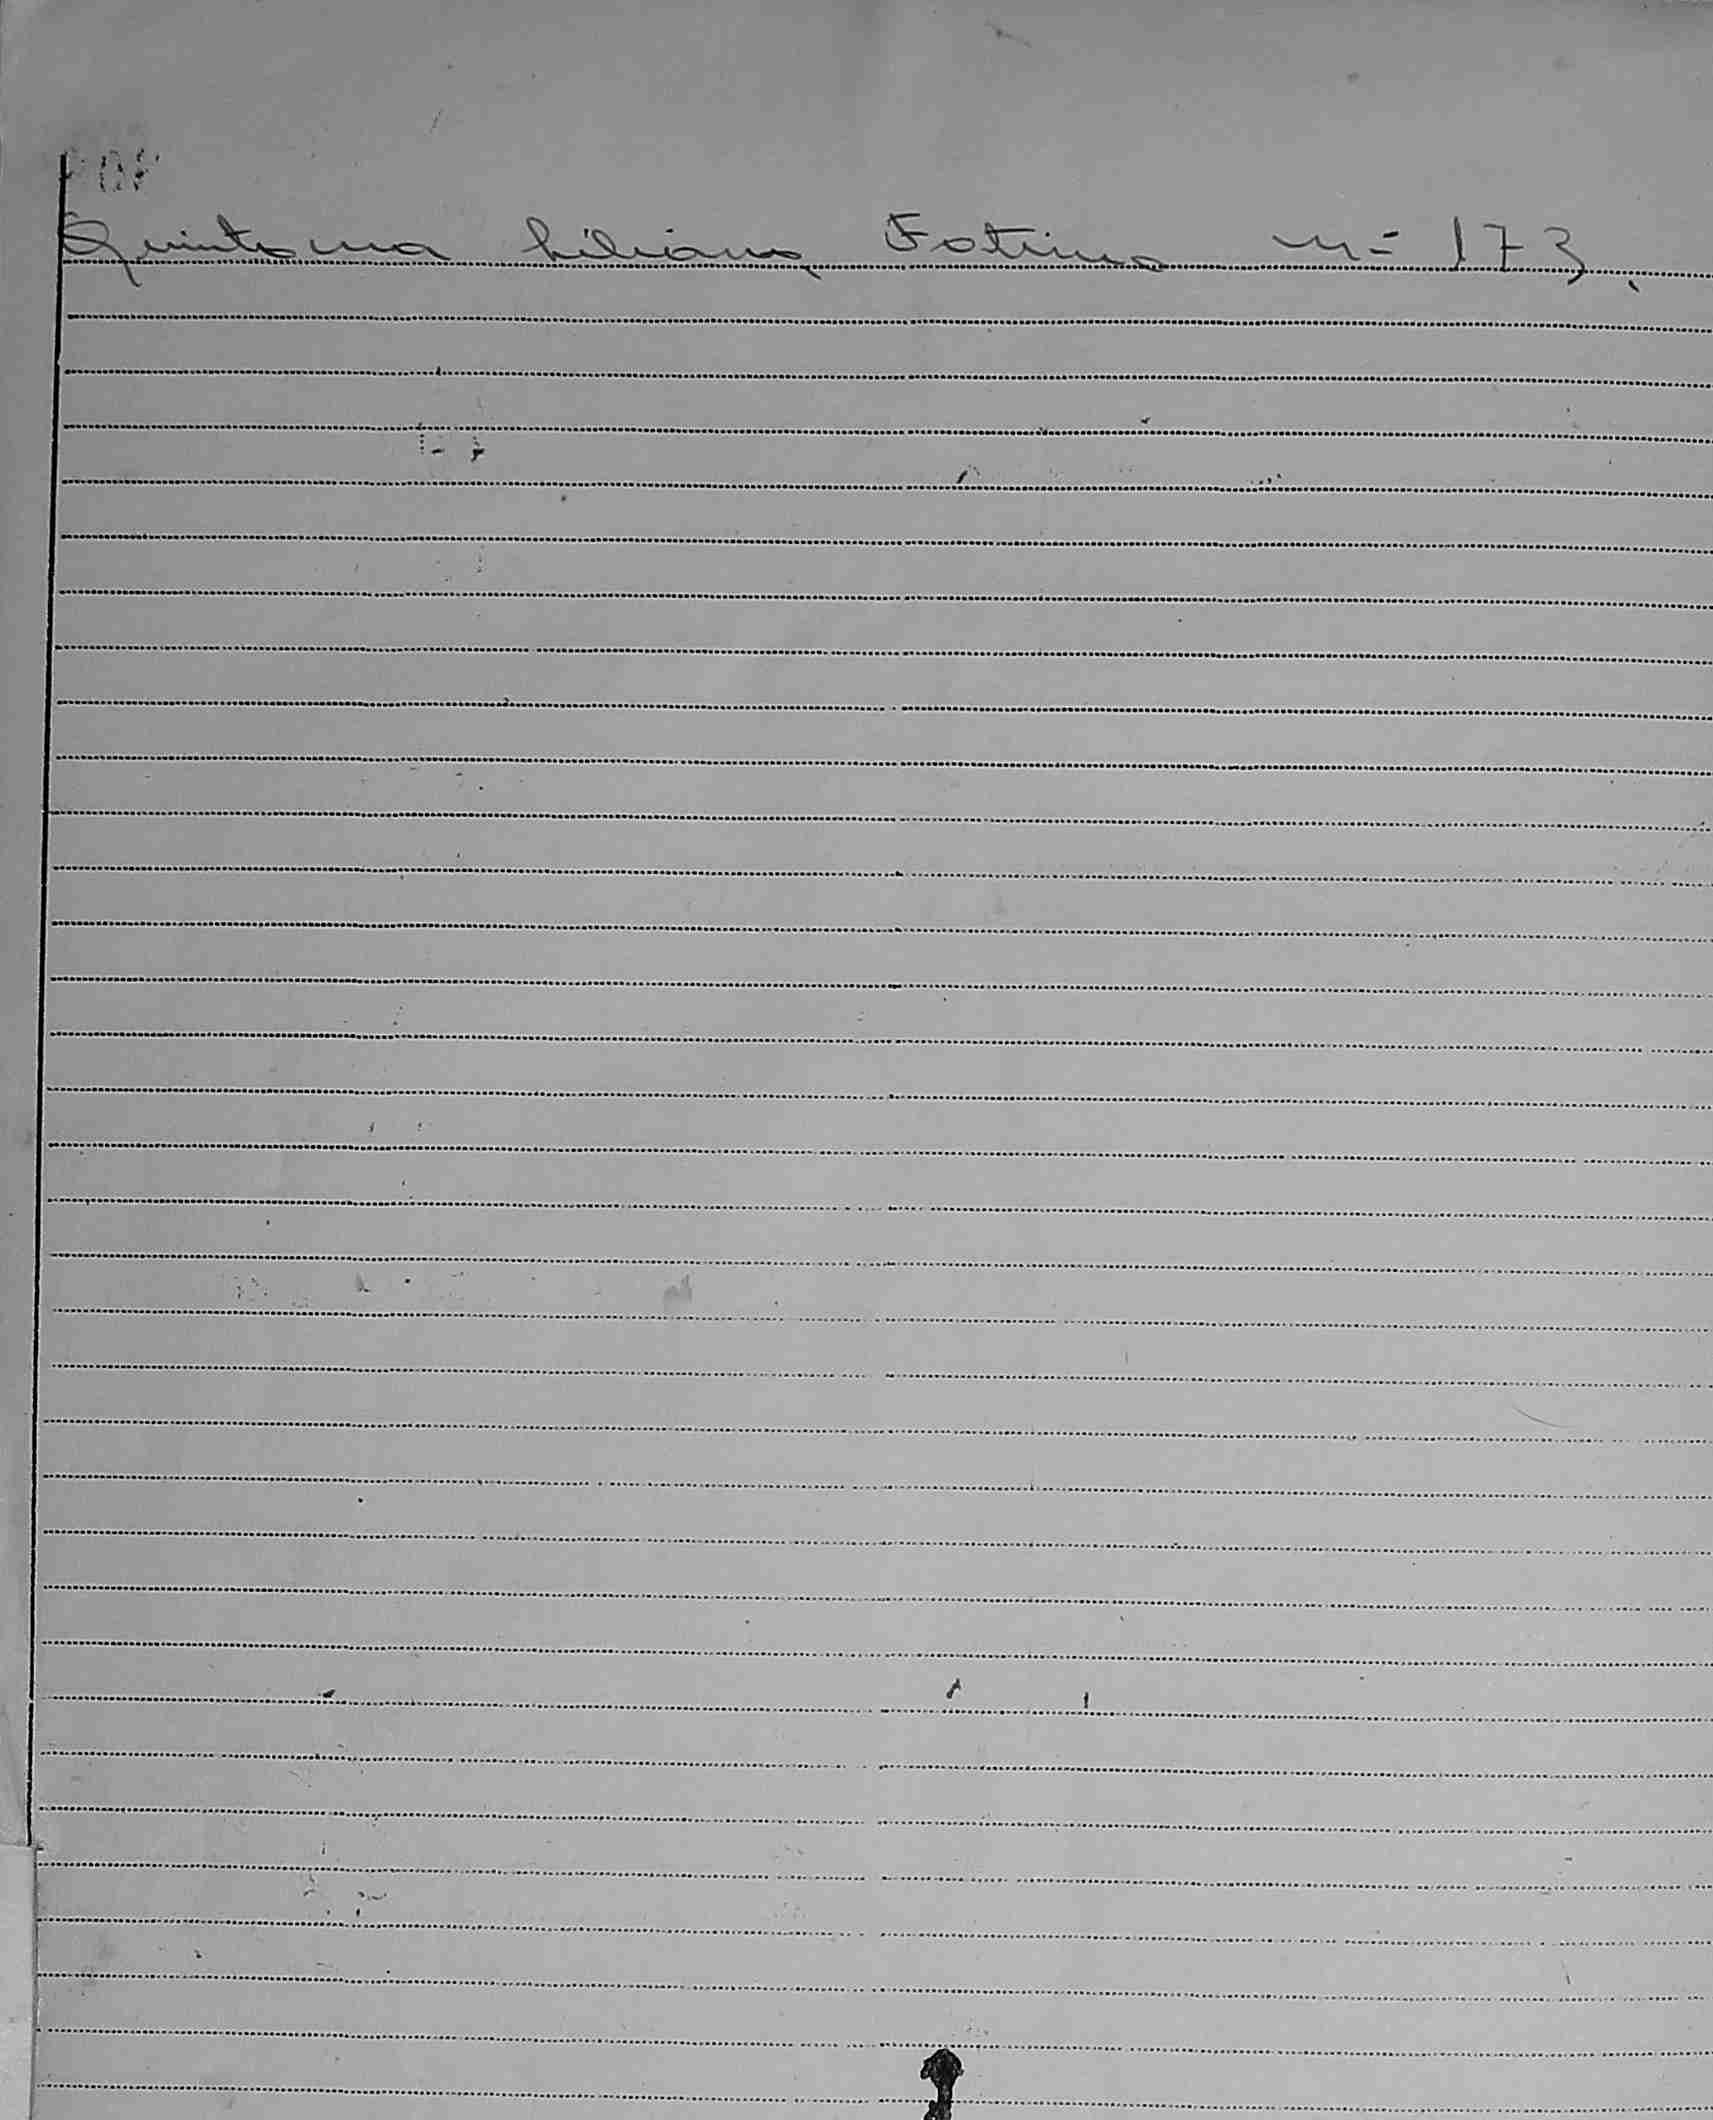 Quintana Liliana Fatima nº 173